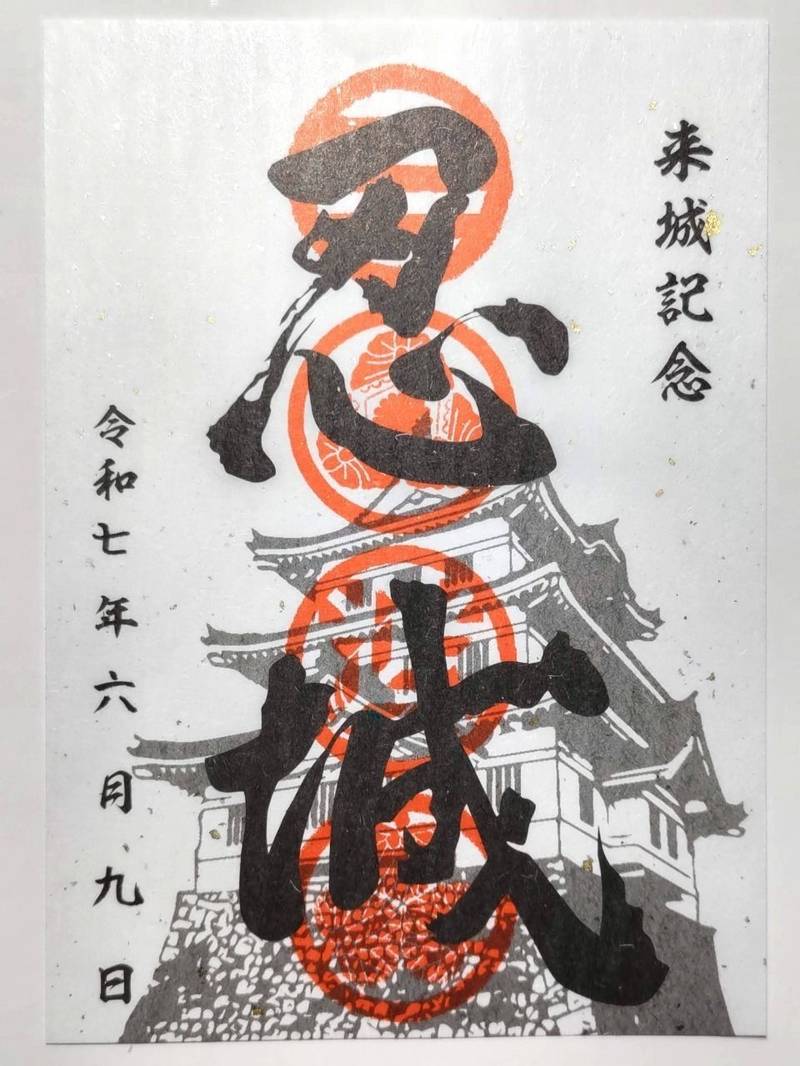 来城記念
忍城
令和七年六月九日